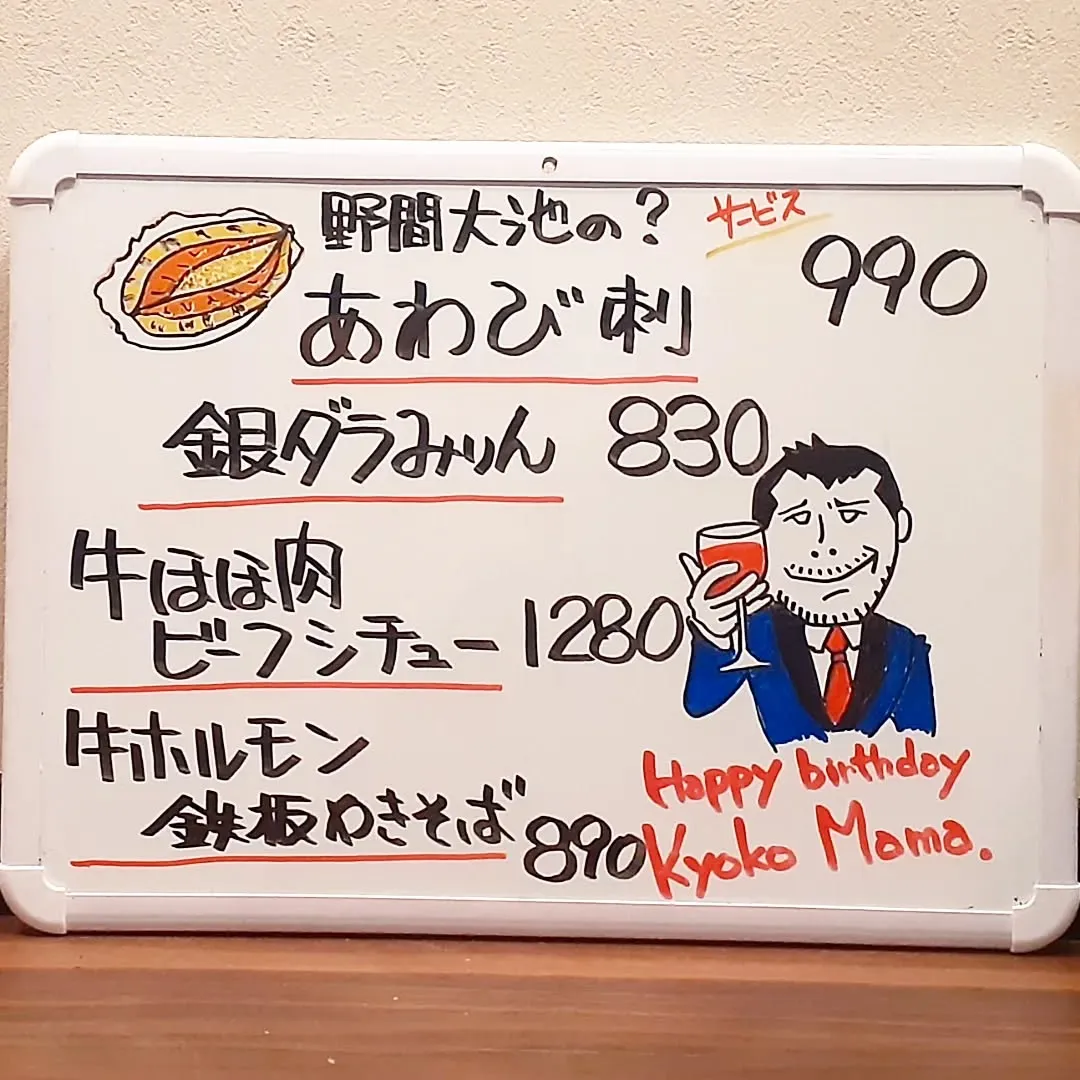 野間大池の? サービス
あわび刺 990
銀ダラみりん 830
牛ほほ肉
ビーフシチュー 1280
牛ホルモン
鉄板やきそば 890
Happy birthday
Kyoko Mama.